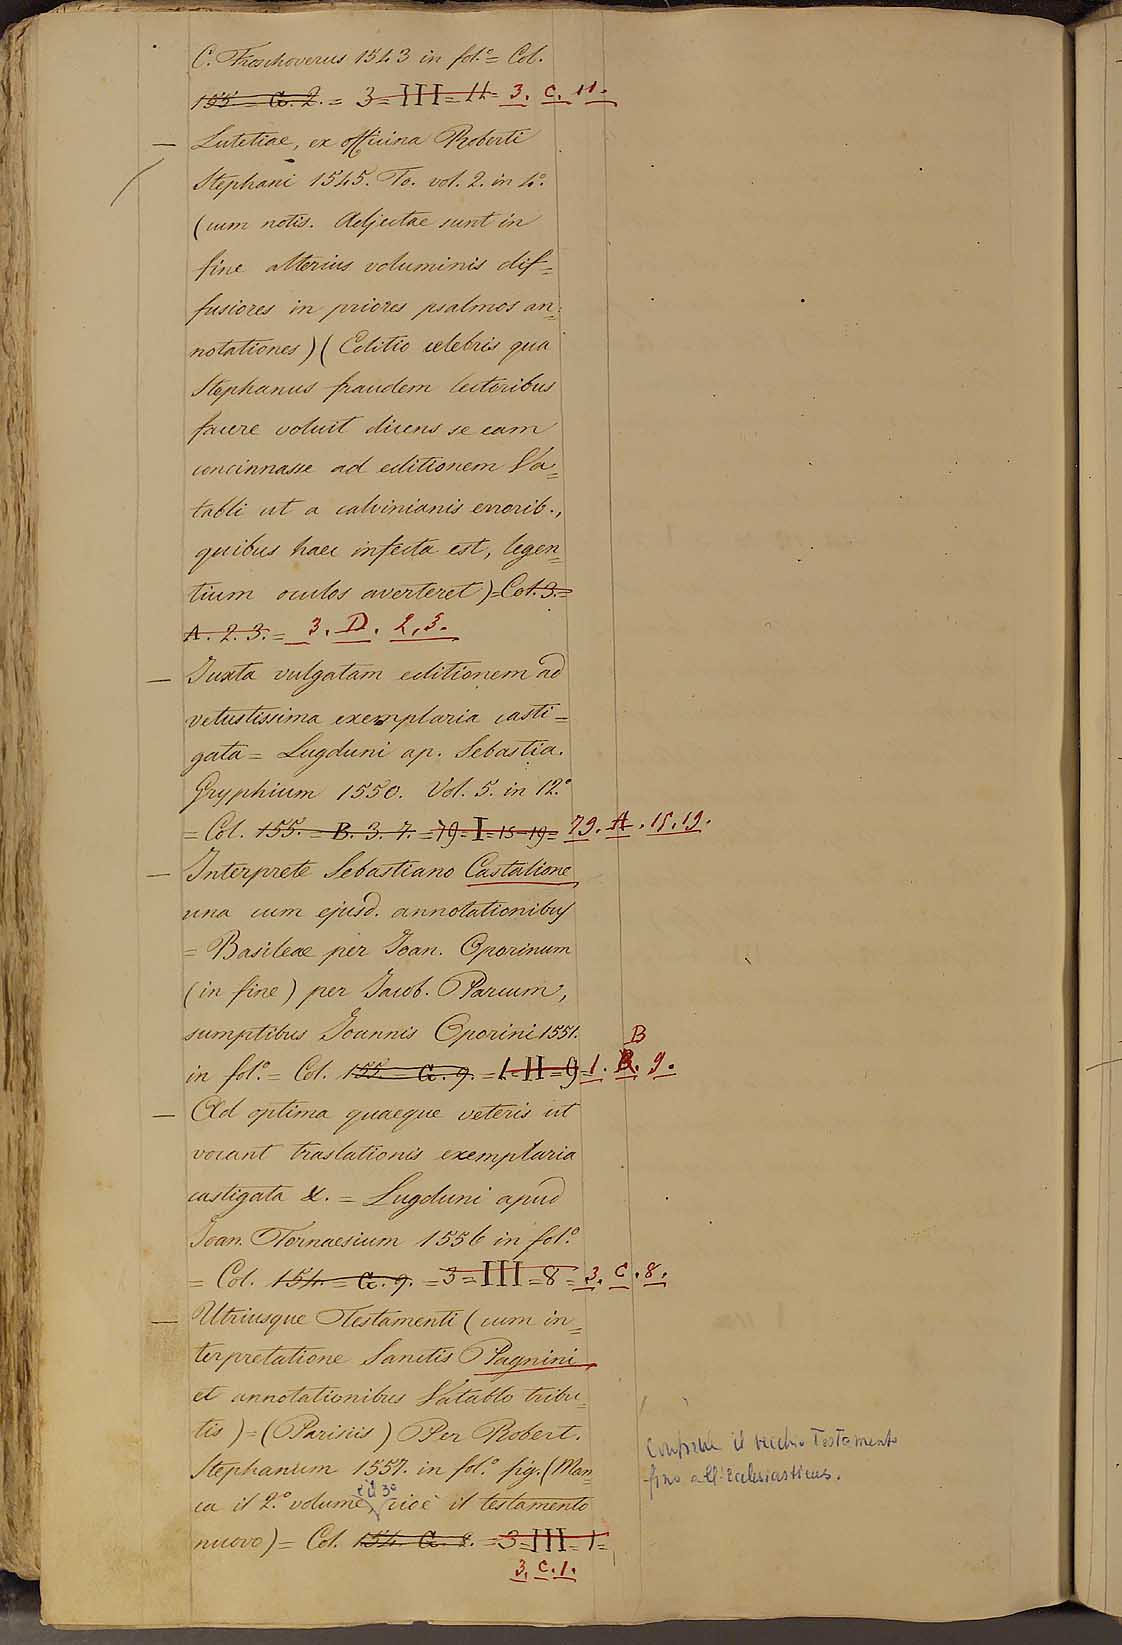 C. Froschoverus 1543 in fol.º = Col.
155 = G. 2. = 3 = III = 11 = 3. C. 11.
— Lutetiae, ex officina Roberti
Stephani 1545. To. vol. 2. in 4.º
(cum notis. Adjectae sunt in
fine alterius voluminis dif=
fusiores in priores psalmos an=
notationes) (Editio celebris qua
Stephanus fraudem lectoribus
facere voluit dicens se eam
concinnasse ad editionem Va=
tabli ut a calvinianis errorib.,
quibus haec infecta est, legen=
tium oculos averteret) = Col. 3. =
A. 2. 3. = 3. D. 2, 3.
— Juxta vulgatam editionem ad
vetustissima exemplaria casti=
gata = Lugduni ap. Sebastia.
Gryphium 1550. Vol. 5. in 12.º
= Col. 155. = B. 3. 7. = 79 = I = 15 = 19 = 79. A. 15. 19.
— Interprete Sebastiano Castalione
una cum ejusd. annotationibus
= Basileae per Joan. Oporinum
(in fine) per Jacob. Parcum,
sumptibus Joannis Oporini 1551.
B
in fol.º = Col. 155. = G. 9. = 1. = II = 9 = 1. 9.
— Ad optima quaeque veteris ut
vocant traslationis exemplaria
castigata &. = Lugduni apud
Joan. Tornaesium 1556 in fol.º
= Col. 154. = G. 9. = 3 = III = 8 = 3. C. 8.
— Utriusque Testamenti (cum in=
terpretatione Sanctis Pagnini
et annotationibus Vatablo tribu=
tis) = (Parisiis) Per Robert.
Stephanum 1557. in fol.º fig. (Man=
e il 3º
ca il 2.º volume, cioè il testamento
nuovo) = Col. 154. G. 8. = 3 = III = 1 =
3. C. 1.
Comprende il vecchio Testamento
fino all'Ecclesiasticus.